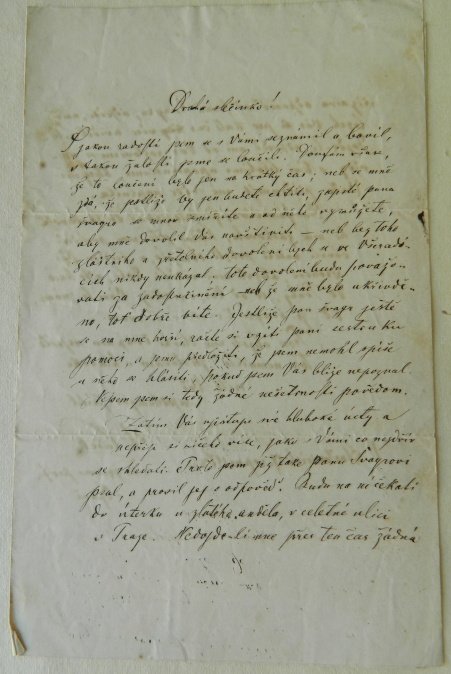 Drahá slečinko!
S jakou radostí jsem se s Vámi seznámil a bavil,
v takou žalostí jsme se loučili. Doufám však,
že to loučení bylo jen na krátký čas; neb se mně
zdá, že jestliže by jen budete chtíti, zajisté pana
švagra se mnou smíříte a od něho vymůžete,
aby mně dovolil Vás navštíviti – neb bez toho
zvláštního a zřetelného dovolení bych u ve Všeradi-
cích nikdy neukázal. Toto dovolení budu považo-
vati za zadostiučinění neb že mně bylo ukřivdě-
no, toť dobře víte. Jestliže pan švagr ještě
se na mne horší, račte si vzíti paní sestru ku
pomoci, a jemu předložiti, že jsem nemohl spíše
u něho se hlásiti, pokud jsem Vás blíže nepoznal.
jsem si tedy žádné nešetrnosti povědom.
Zatím Vás ujišťuji své hluboké úcty a
nepřeju si ničeho více, jako s Vámi co nejdřív
se shledati. Proto jsem již také panu Švagrovi
psal, a prosil jej o odpověď. Budu na ni čekati
do úterku u zlatého anděla, v celetné ulici
v Praze. Nedojde-li mne přes ten čas žádná